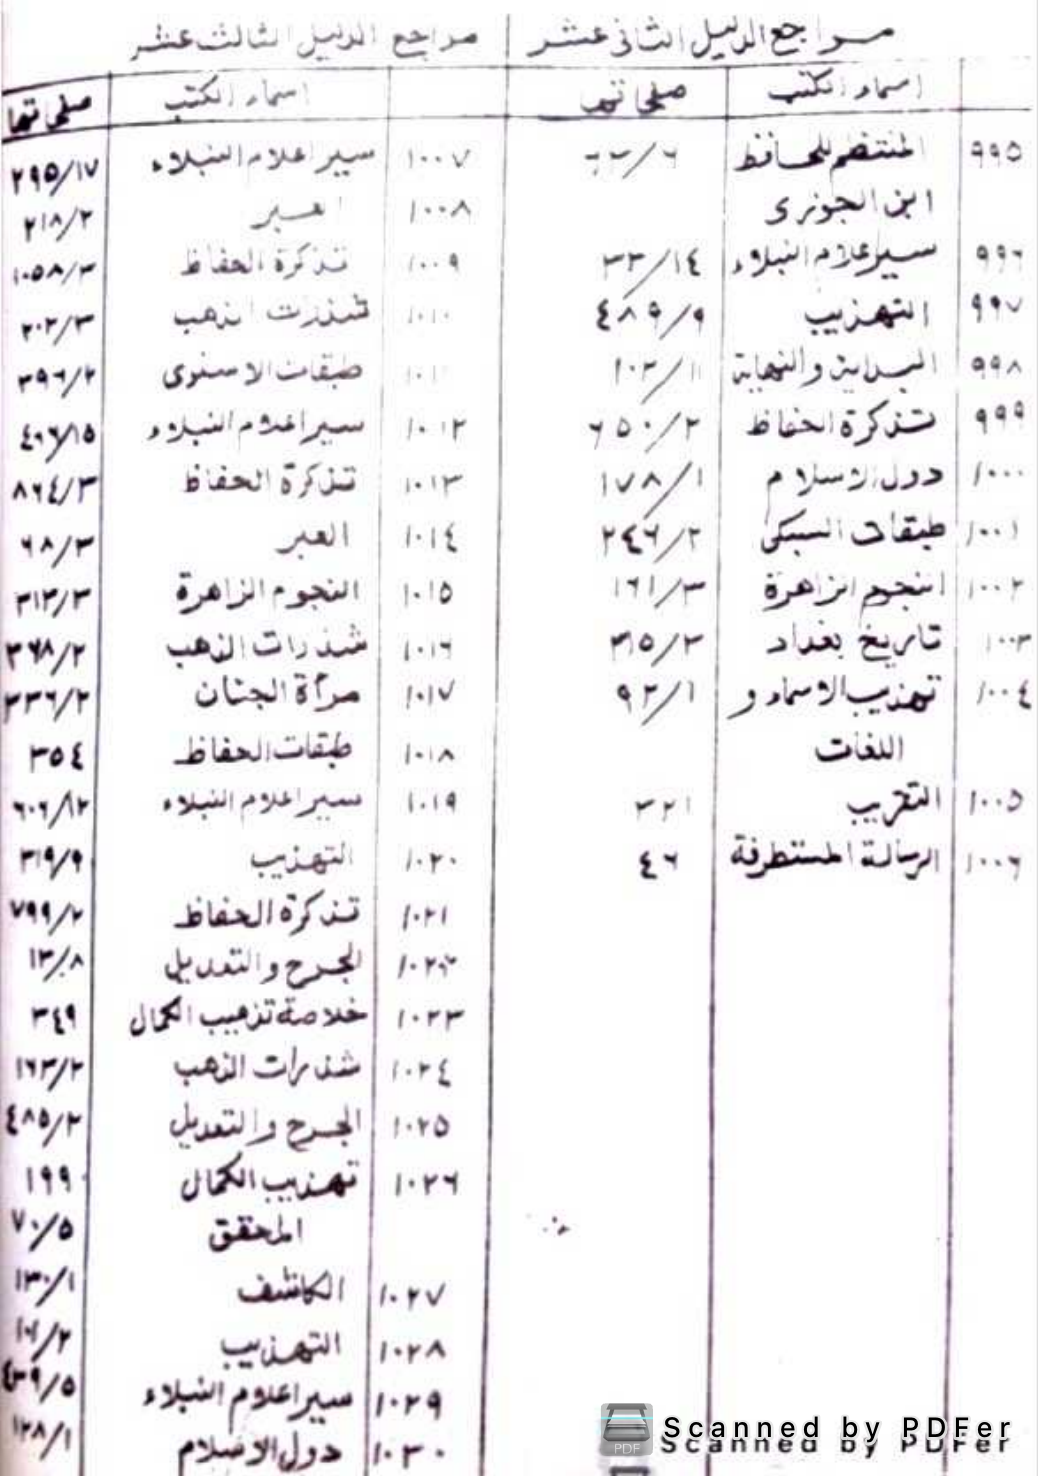 مراجع الدليل الثانى عشر
اسماء الكتب صفحاتها
٩٩٥ المنتضم للحافظ ٦٣/٦
ابن الجوزى
٩٩٦ سير اعلام النبلاء ٣٣/١٤
٩٩٧ التهذيب ٤٨٩/٩
٩٩٨ البداية والنهاية ١٠٣/١١
٩٩٩ تذكرة الحفاظ ٦٥٠/٢
١٠٠٠ دول الاسلام ١٧٨/١
١٠٠١ طبقات السبكى ٢٤٦/٢
١٠٠٢ النجوم الزاهرة ١٦١/٣
١٠٠٣ تاريخ بغداد ٣١٥/٣
١٠٠٤ تهذيب الاسماء و ٩٢/١
اللغات
١٠٠٥ التقريب ٣٢١
١٠٠٦ الرسالة المستطرفة ٤٦
مراجع الدليل الثالث عشر
اسماء الكتب صفحاتها
١٠٠٧ سير اعلام النبلاء ٢٩٥/١٧
١٠٠٨ العبر ٢١٨/٢
١٠٠٩ تذكرة الحفاظ ١٠٥٨/٣
١٠١٠ شذرات الذهب ٢٠٢/٣
١٠١١ طبقات الاسنوى ٣٩٦/٢
١٠١٢ سير اعلام النبلاء ٤٠٦/١٥
١٠١٣ تذكرة الحفاظ ٨٦٤/٣
١٠١٤ العبر ٦٨/٣
١٠١٥ النجوم الزاهرة ٣١٣/٣
١٠١٦ شذرات الذهب ٣٦٨/٢
١٠١٧ مرأة الجنان ٣٣٦/٢
١٠١٨ طبقات الحفاظ ٣٥٤
١٠١٩ سير اعلام النبلاء ٦٠٦/١٢
١٠٢٠ التهذيب ٣١٩/٩
١٠٢١ تذكرة الحفاظ ٧٩٩/٢
١٠٢٢ الجرح والتعديل ١٣/٨
١٠٢٣ خلاصة تذهيب الكمال ٣٤٩
١٠٢٤ شذرات الذهب ١٦٣/٢
١٠٢٥ الجرح والتعديل ٤٨٥/٢
١٠٢٦ تهذيب الكمال ١٩٩
المحقق ٧٠/٥
١٠٢٧ الكاشف ١٣٠/١
١٠٢٨ التهذيب ١٠١/٢
١٠٢٩ سير اعلام النبلاء ٤٣٩/٥
١٠٣٠ دول الاسلام ١٢٨/١
PDF Scanned by PDFer
Scanned by PDFer